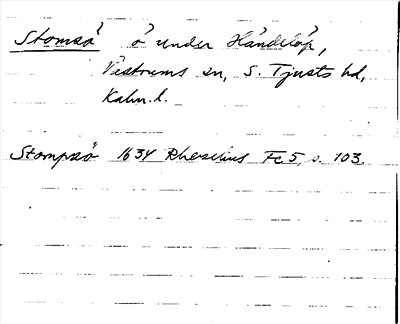 Stomsö ö under Händelöp,
Västrums sn, S. Tjusts hd,
Kalm. l.
Stompsö 1634 Rhezelius Fc 5, s. 103.